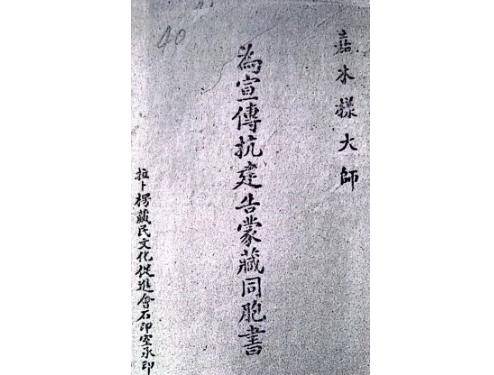 嘉木樣大師
為宣傳抗建告蒙藏同胞書
拉卜楞藏民文化促進會石印室承印
40